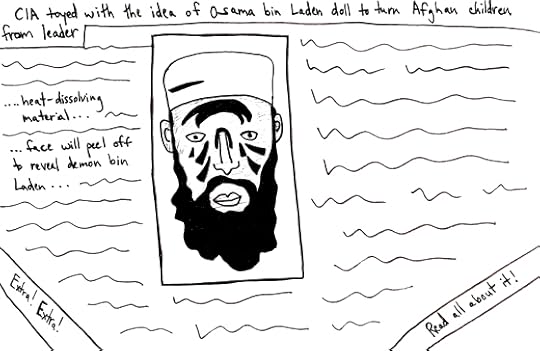 CIA toyed with the idea of Osama bin Laden doll to turn Afghan children
from leader
....heat-dissolving
material...
...face will peel off
to reveal demon bin
Laden...
Extra! Extra!
Read all about it!